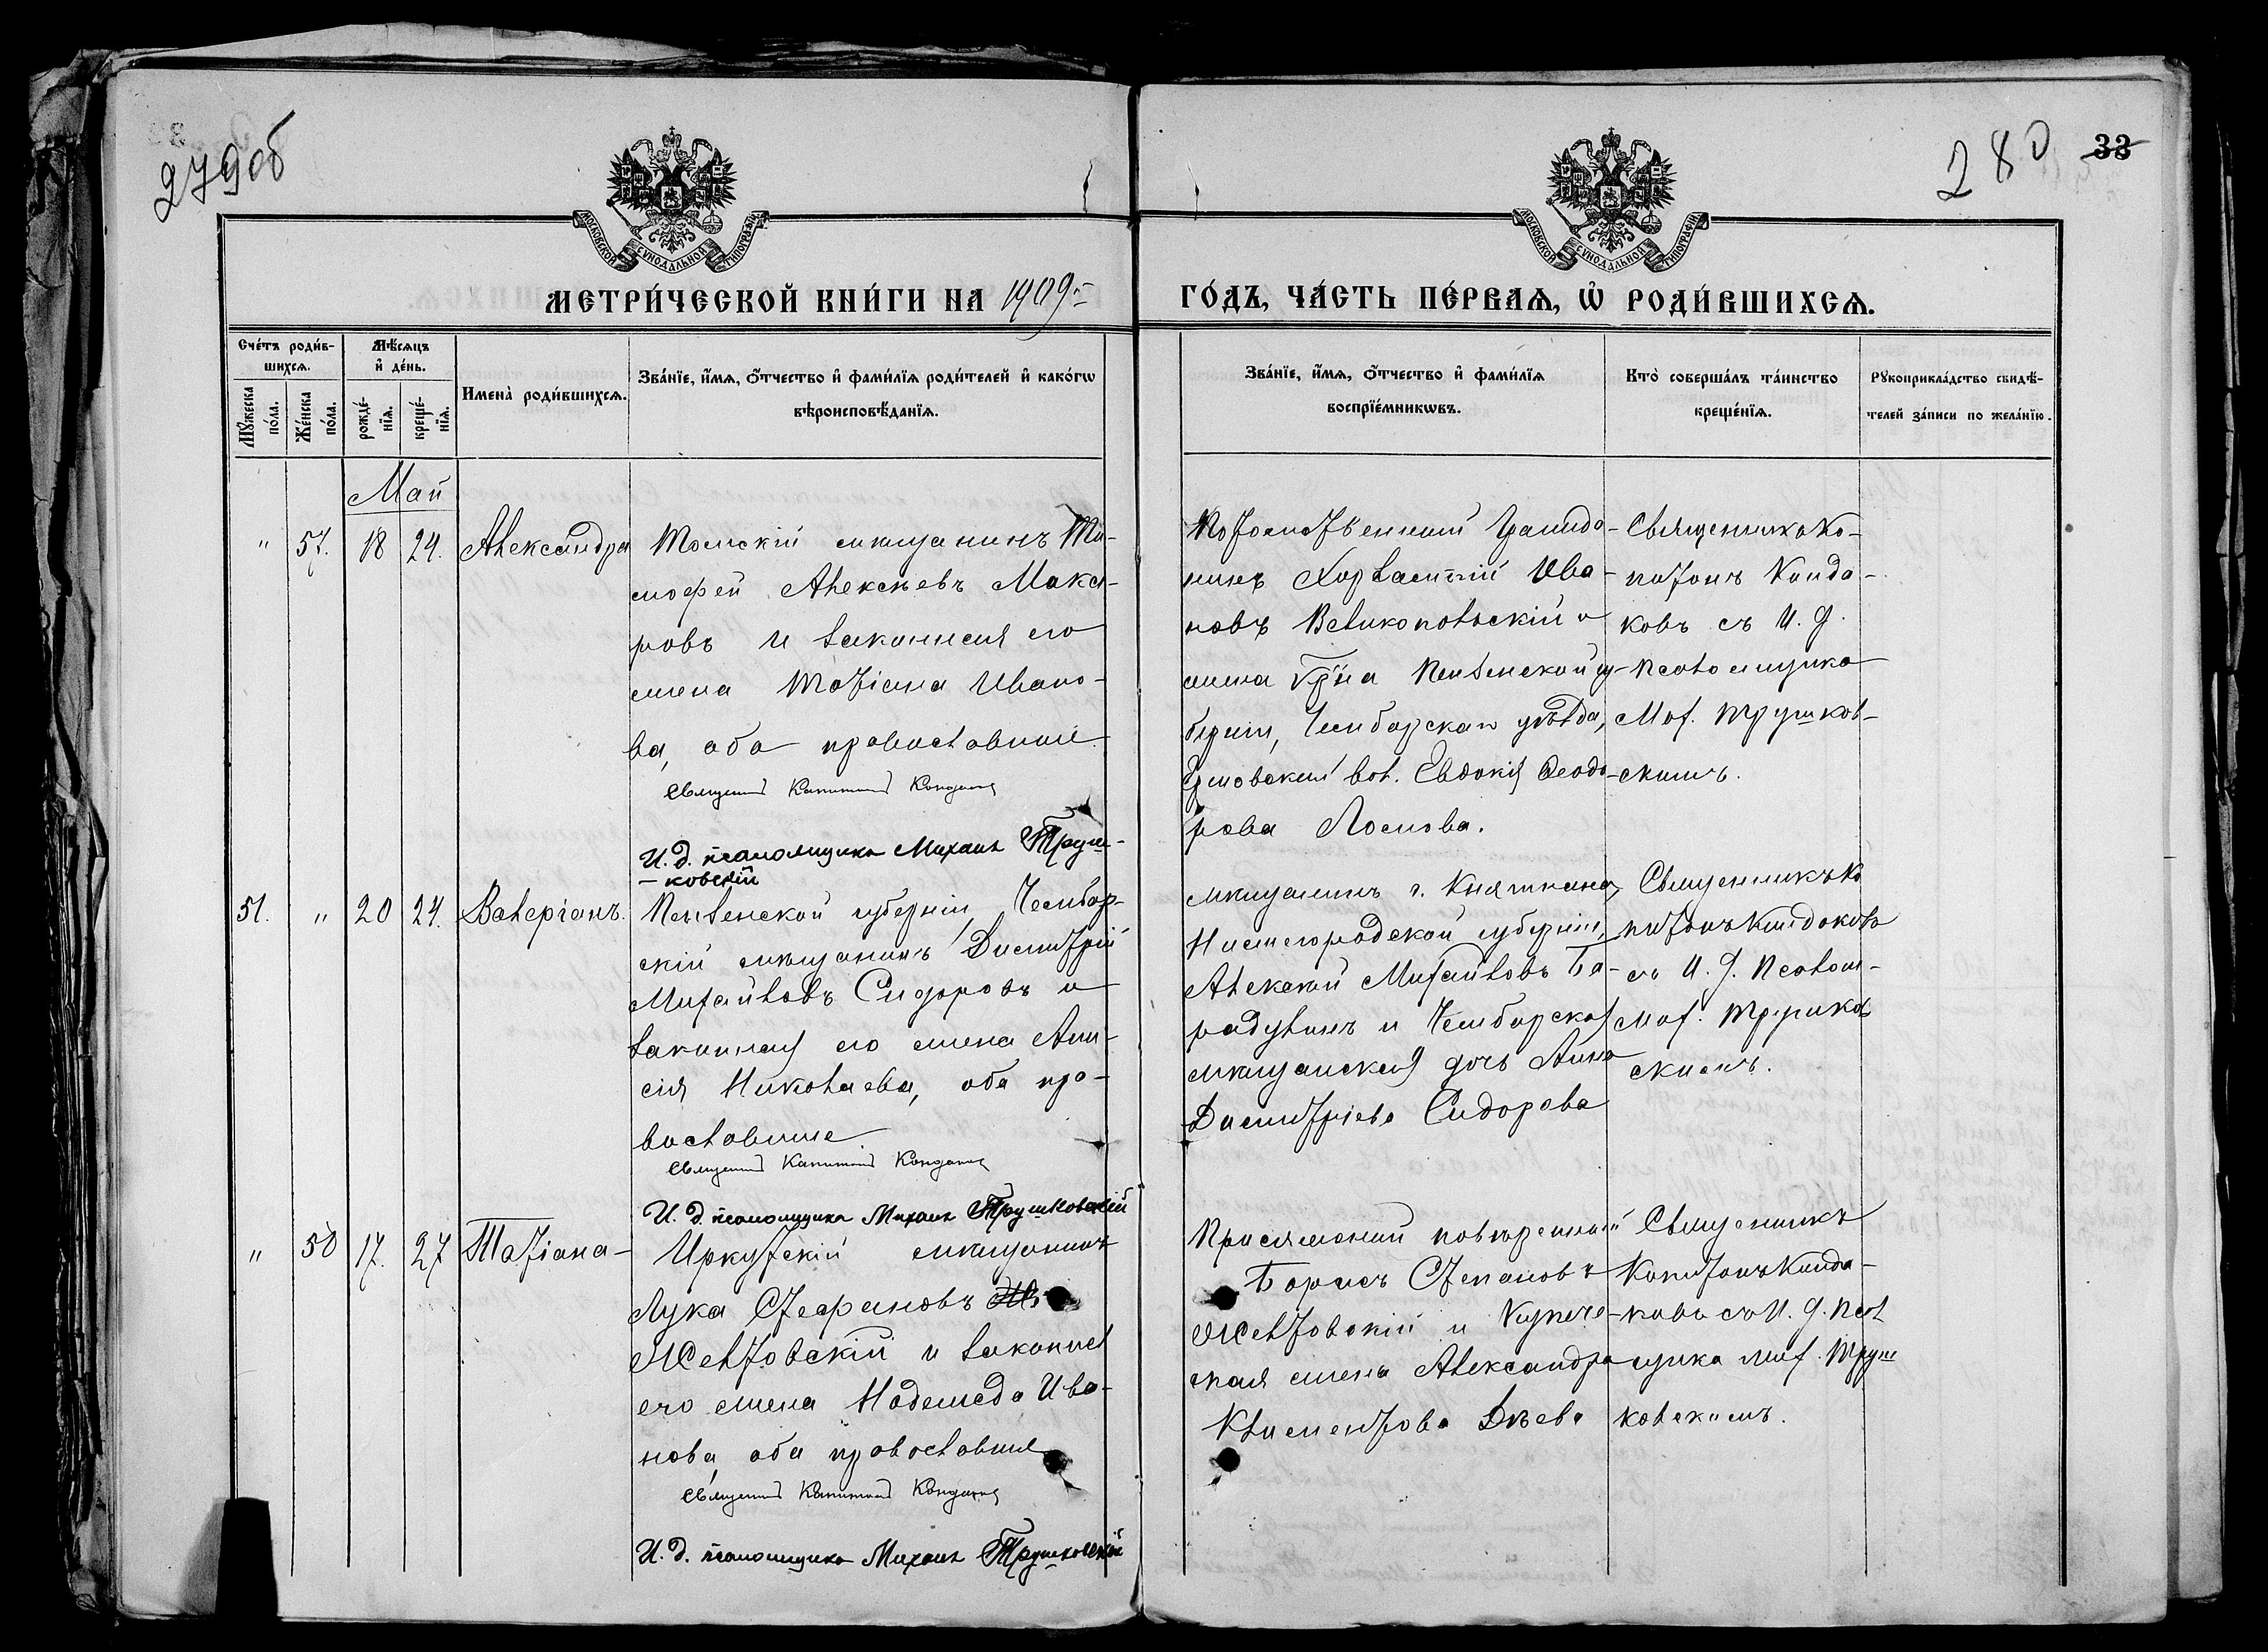 279об
280 33
МОСКОВСКОЙ СѴНОДАЛЬНОЙ ТИПОГРАФІИ
МОСКОВСКОЙ СѴНОДАЛЬНОЙ ТИПОГРАФІИ
МЕТРИ́ЧЕСКОЙ КНИ́ГИ НА 1909 г
ГО́ДЪ, ЧА́СТЬ ПЕ́РВАѦ, Ѡ РОДИ́ВШИХСѦ.
Сче́тъ роди́в-
шихсѧ.
Мꙋ́жеска по́ла.
Же́нска по́ла.
Мѣ́сѧцъ
и҆ де́нь.
рожде́-нїѧ.
креще́-нїѧ.
Имена̀ роди́вшихсѧ.
Зва́нїе, и҆́мѧ, ѻ҆́тчество и҆ фами́лїѧ роди́телей и҆ како́гѡ
вѣроисповѣ́данїѧ.
Зва́нїе, и҆́мѧ, ѻ҆́тчество и҆ фами́лїѧ
воспрїе́мникѡвъ.
Кто̀ соверша́лъ та́инство
креще́нїѧ.
Рꙋкоприкла́дство свидѣ́-
телей за́писи по жела́нїю.
Май
" 57. 18 24. Александра
Томскій мѣщанинъ Ти-
мофей Алексѣевъ Мака-
ровъ и законная его
жена Татіана Ивано-
ва, оба православные.
Священникъ Капитонъ Кондаковъ
И. д. псаломщика Михаилъ Труш-
-ковскій
Потомственный Гражда-
нинъ Харлампій Ива-
новъ Великопольскій и
жена Пензенской гу-
берніи, Чембарскаго уѣзда,
вол. Евдокія Ѳеодо-
рова Лосмова.
Священникъ Ка-
питонъ Конда-
ковъ съ И. д.
псаломщика
Мих. Трушков-
скимъ.
51. " 20 24. Валеріанъ.
Пензенской губерніи, Чембар-
скій мѣщанинъ Димитрій
Михайловъ Сидоровъ и
законная его жена Ани-
сія Николаева, оба пра-
вославные.
Священникъ Капитонъ Кондаковъ
И. д. псаломщика Михаилъ Трушковскій
мѣщанинъ г. Княгинина,
Нижегородской губерніи,
Алексѣй Михайловъ Ба-
радулинъ и Чембарская
мѣщанская дочь Анна
Димитріева Сидорова
Священникъ Ка
питонъ Кондаковъ
съ И. д. Псалом-
Мих. Трушков
скимъ.
" 58 17. 27 Татіана
Иркутскій мѣщанинъ
Лука Стефановъ
Желтовскій и законная
его жена Надежда Ива-
нова, оба православные
Священникъ Капитонъ Кондаковъ
И. д. псаломщика Михаилъ Трушковскій
Присяжный повѣренный
Борисъ Степановъ
Желтовскій и Купече-
ская жена Александра
Климентова Дѣева
Священникъ
Капитонъ Конда-
ковъ съ И. д. псал
щика Мих. Труш
ковскимъ.